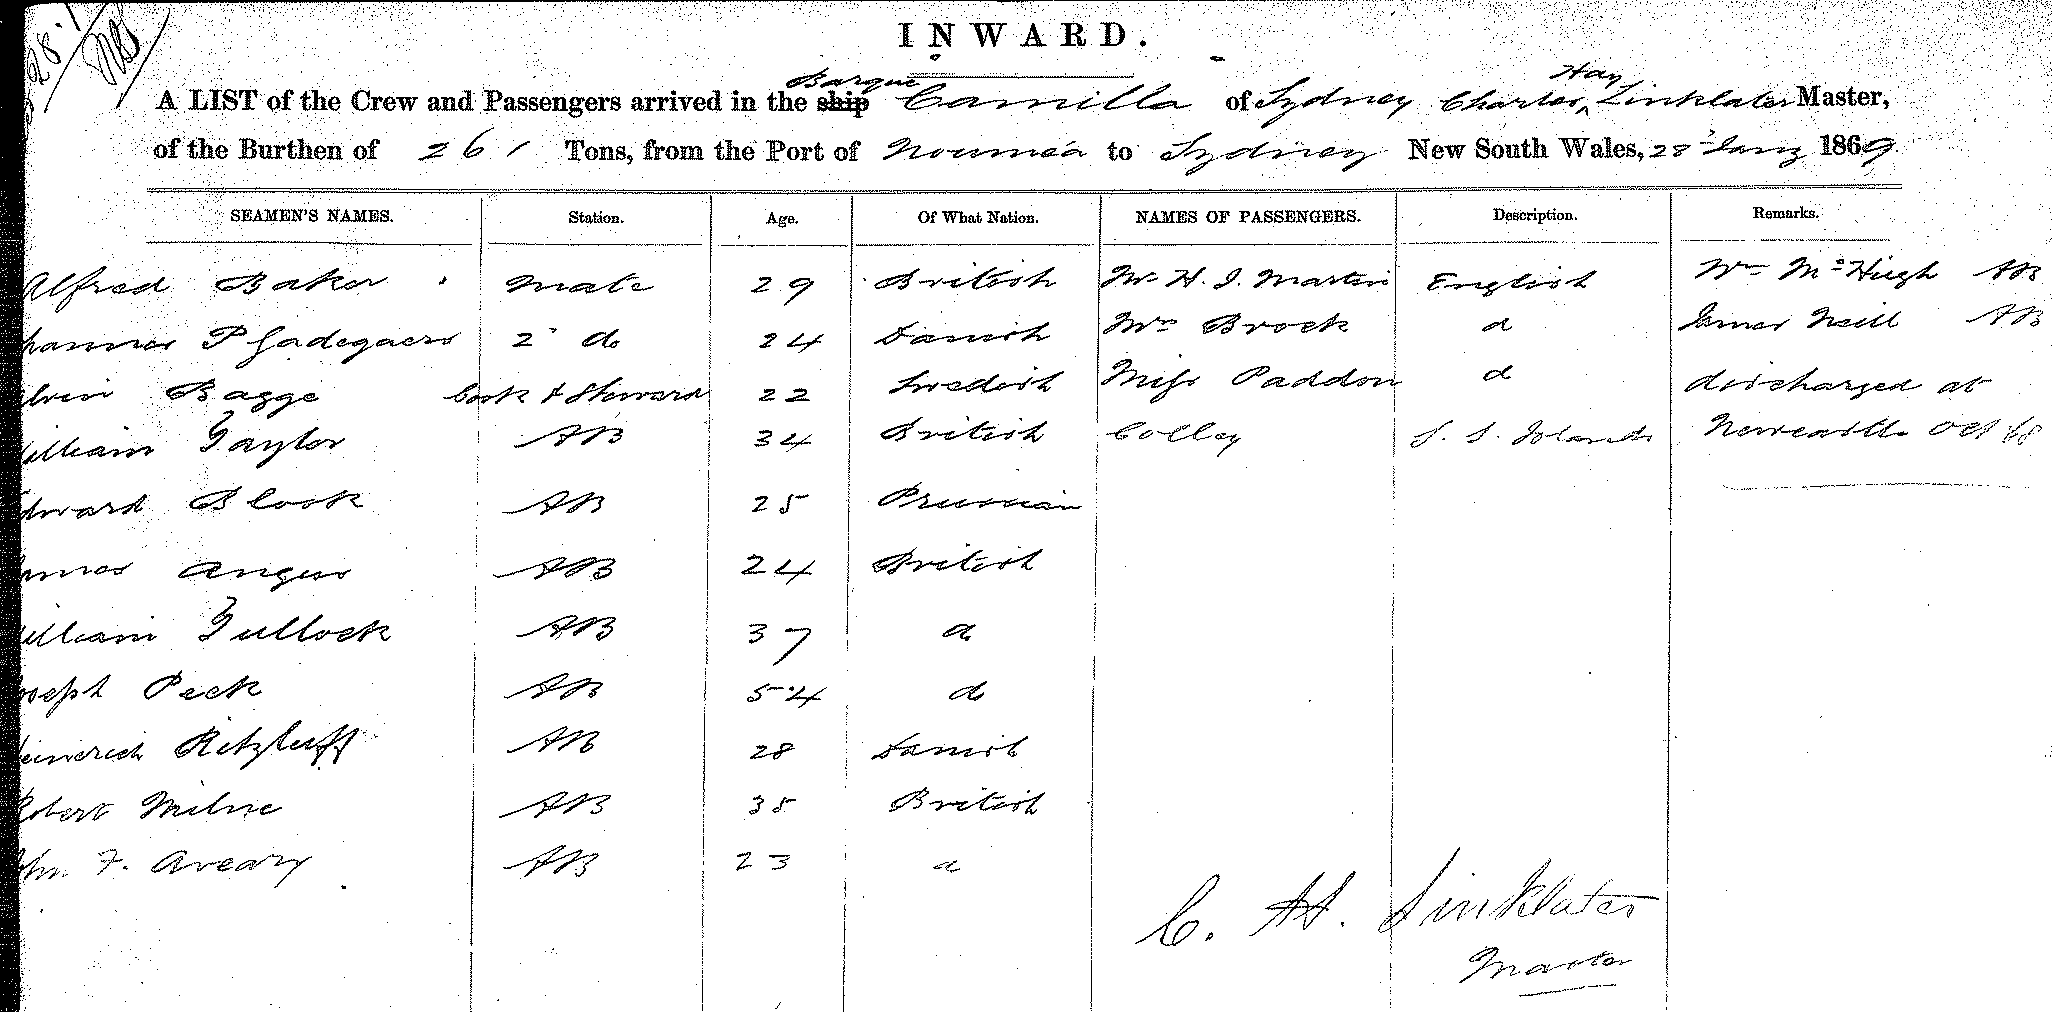 INWARD.
Barque Hay
A LIST of the Crew and Passengers arrived in the ship Camilla of Sydney Charles Linklater Master,
of the Burthen of 261 Tons, from the Port of Noumea to Sydney New South Wales, 28 Jany 1869
SEAMEN'S NAMES. Station. Age. Of What Nation. NAMES OF PASSENGERS. Description. Remarks.
Alfred Baker Mate 29 British Mr H. J. Martin English Wm McHugh AB
2 do 24 Danish Mrs Brock do James Neill AB
Bagge Cook & Steward 22 Swedish Miss Paddon do discharged at
William Taylor AB 34 British Colley S. S. Islands Newcastle Oct 68
Edward Block AB 25 Prussian
James Angus AB 24 British
William Tullock AB 37 do
Joseph Peck AB 54 do
Heinrich Ritzluff AB 28 Danish
Robert Milne AB 38 British
John F. Aveary AB 23 do
C. H. Linklater
Master